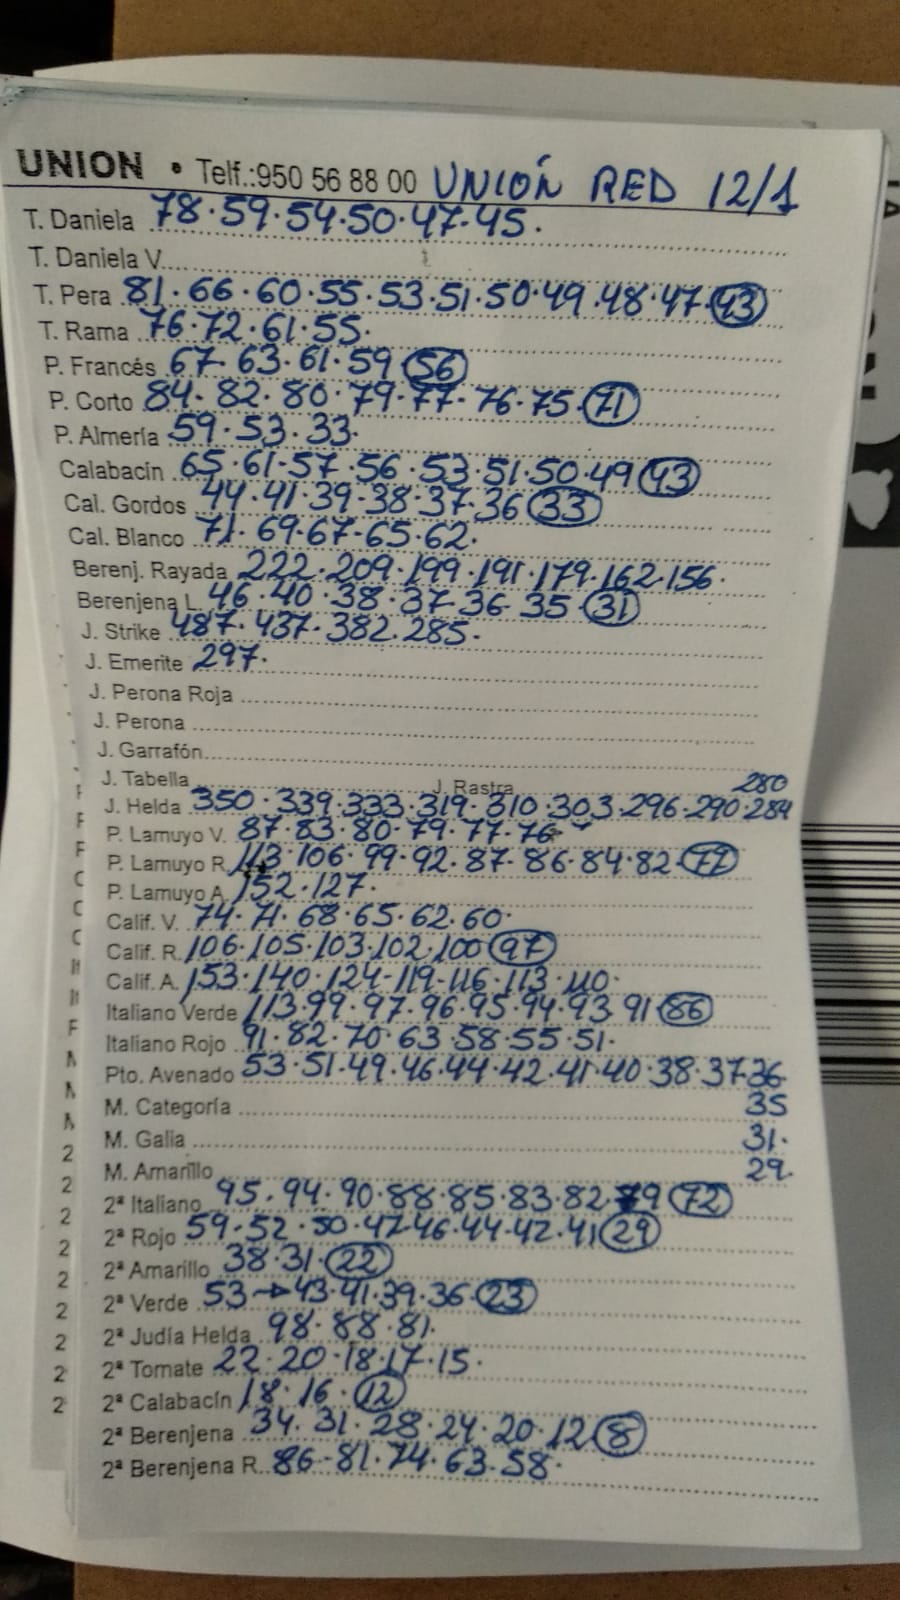 UNION • Telf.:950 56 88 00 UNIÓN RED 12/1
T. Daniela 78·59·54·50·47·45·
T. Daniela V.
T. Pera 81·66·60·55·53·51·50·49·48·47·43
T. Rama 76·72·61·55·
P. Francés 67·63·61·59 56
P. Corto 84·82·80·79·77·76·75·71
P. Almería 59·53·33·
Calabacín 65·61·57·56·53·51·50·49 43
Cal. Gordos 44·41·39·38·37·36 33
Cal. Blanco 71·69·67·65·62·
Berenj. Rayada 222·209·199·191·179·162·156·
Berenjena L. 46·40·38·37·36·35·31
J. Strike 487·437·382·285·
J. Emerite 297·
J. Perona Roja
J. Perona
J. Garrafón
J. Tabella J. Rastra 280
J. Helda 350·339·333·319·310·303·296·290·284
P. Lamuyo V. 87·83·80·79·77·76
P. Lamuyo R. 113·106·99·92·87·86·84·82·77
P. Lamuyo A. 152·127·
Calif. V. 74·71·68·65·62·60·
Calif. R. 106·105·103·102·100 97
Calif. A. 153·140·124-119-116·113·110·
Italiano Verde 113·99·97·96·95·94·93·91 86
Italiano Rojo 91·82·70·63·58·55·51·
Pto. Avenado 53·51·49·46·44·42·41·40·38·37·36
M. Categoría 35
M. Galia 31·
M. Amarillo 29·
2ª Italiano 95·94·90·88·85·83·82·79 72
2ª Rojo 59·52·50·47·46·44·42·41 29
2ª Amarillo 38·31·22
2ª Verde 53→43·41·39·36·23
2ª Judía Helda 98·88·81·
2ª Tomate 22·20·18·17·15·
2ª Calabacín 18·16·12
2ª Berenjena 34·31·28·24·20·12 8
2ª Berenjena R. 86-81·74·63·58·